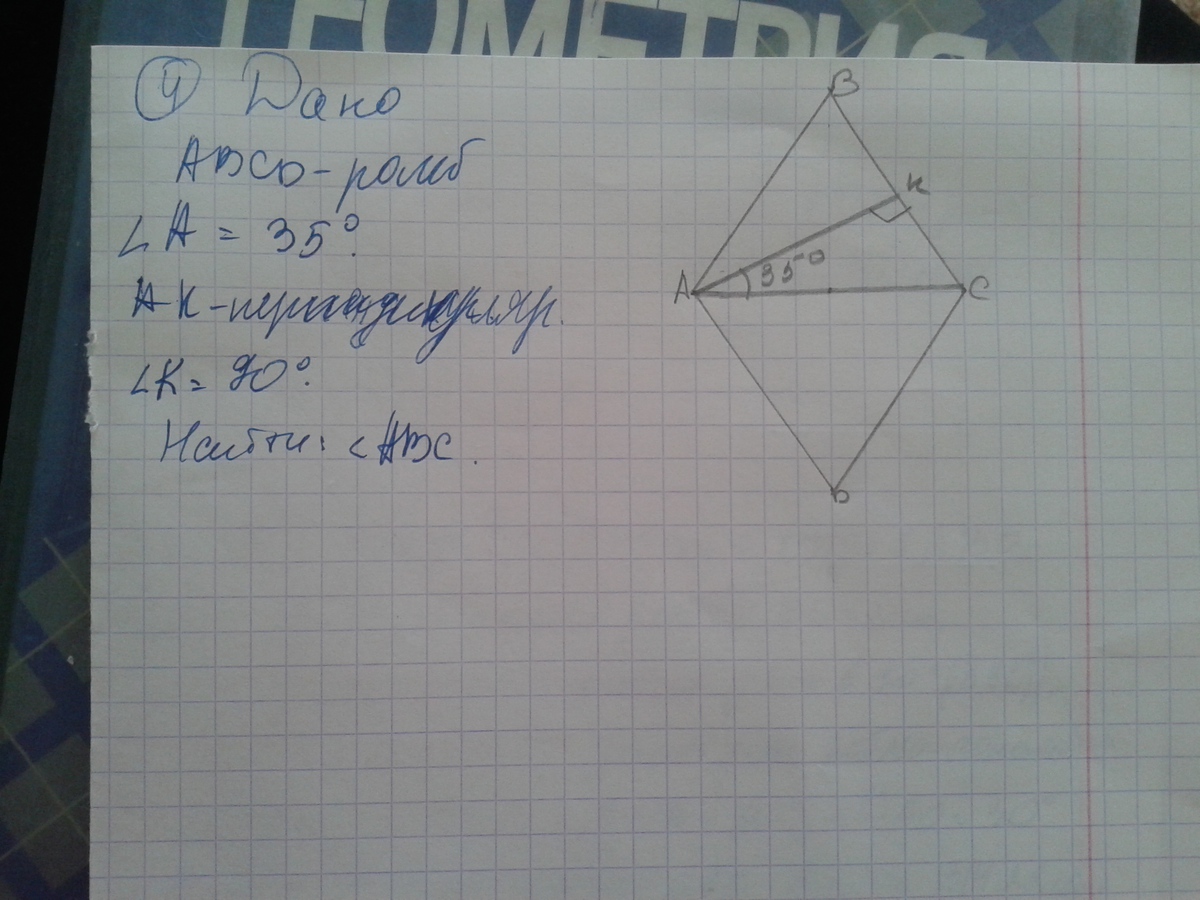 ГЕОМЕТРИЯ
④ Дано
ABCD - ромб
∠A = 35°.
AK - перпендикуляр.
∠K = 90°.
Найти: ∠ABC.
B
K
35°
A
C
D